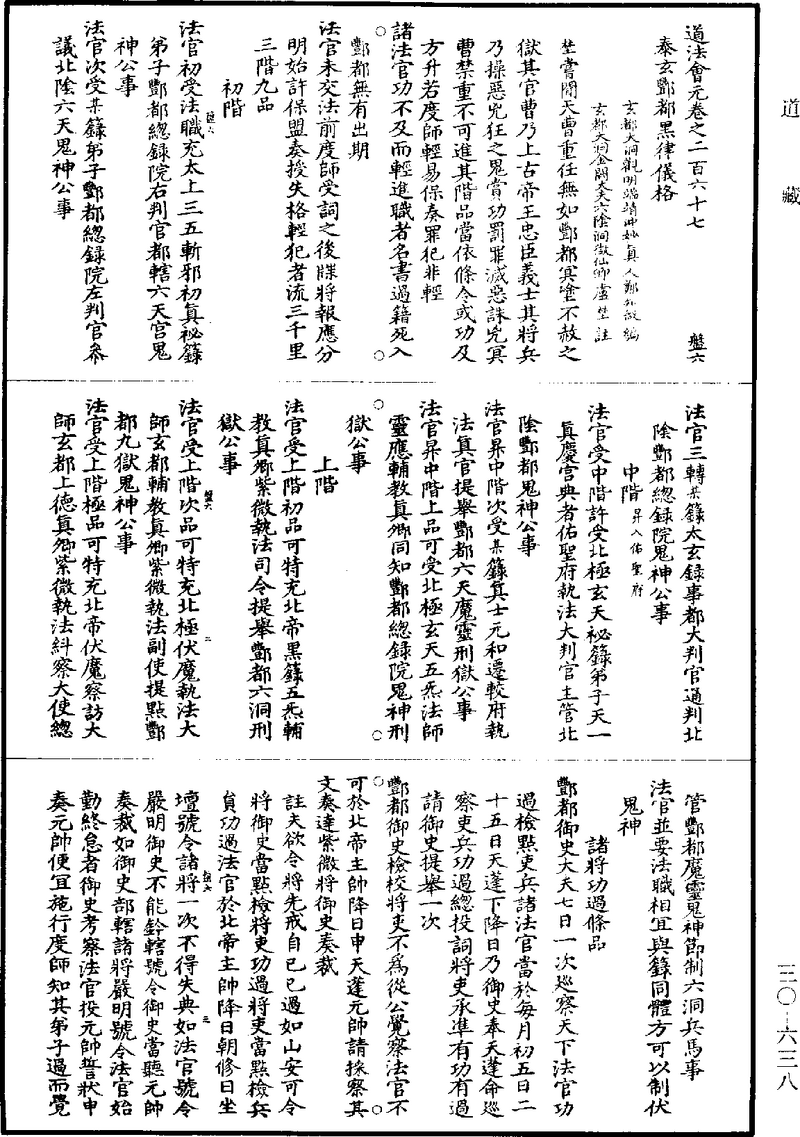 道藏
道法會元卷之二百六十七
盤六
泰玄酆都黑律儀格
玄都大洞觀明端靖冲妙真人鄭知微編
玄都大洞金闕大夫六陰洞微仙卿盧埜註
埜嘗聞天曹重任無如酆都冥塗不赦之
獄其官曹乃上古帝王忠臣義士其將兵
乃操惡兇狂之鬼賞功罰罪滅惡誅兇冥
曹禁重不可進其階品當依條令或功及
方升若度師輕易保奏罪犯非輕
諸法官功不及而輕進職者名書過籍死入
酆都無有出期
法官未交法前度師受詞之後牒將報應分
明始許保盟奏授失格輕犯者流三千里
三階九品
初階
法官初受法職充太上三五斬邪初真祕籙
弟子酆都總錄院右判官都轄六天宫鬼
神公事
法官次受某籙弟子酆都總錄院左判官叅
議北陰六天鬼神公事
法官三轉某籙太玄録事都大判官通判北
陰酆都總録院鬼神公事
中階昇入佑聖府
法官受中階許受北極玄天祕籙弟子天一
真慶宫典者佑聖府執法大判官主管北
陰酆都鬼神公事
法官昇中階次受某籙真士元和遷較府執
法真官提舉酆都六天魔靈刑獄公事
法官昇中階上品可受北極玄天五炁法師
靈應輔教真卿同知酆都總録院鬼神刑
獄公事
上階
法官受上階初品可特充北帝黑籙五炁輔
教真卿紫微執法司令提舉酆都六洞刑
獄公事
法官受上階次品可特充北極伏魔執法大
師玄都輔教真卿紫微執法副使提點酆
都九獄鬼神公事
法官受上階極品可特充北帝伏魔察訪大
師玄都上德真卿紫微執法糾察大使總
管酆都魔靈鬼神節制六洞兵馬事
法官並要法職相宜與籙同體方可以制伏
鬼神
諸將功過條品
酆都御史大夫七日一次巡察天下法官功
過檢點吏兵諸法官當於每月初五日二
十五日天蓬下降日乃御史奉天蓬命巡
察吏兵功過總投詞將吏承準有功有過
請御史提舉一次
酆都御史檢校將吏不為從公覺察法官不
可於北帝主帥降日申天蓬元帥請採察其
文奏達紫微將御史奏裁
註夫欲令將先戒自己己過如山安可令
將御史當點檢將吏功過將吏當點檢兵
負功過法官於北帝主帥降日朝修日坐
壇號令諸將一次不得失典如法官號令
嚴明御史不能鈐轄號令御史當聽元帥
奏裁如御史部轄諸將嚴明號令法官始
勤終怠者御史考察法官投元帥誓狀申
奏元帥便宜施行度師知其弟子過而覺
三〇—六三八